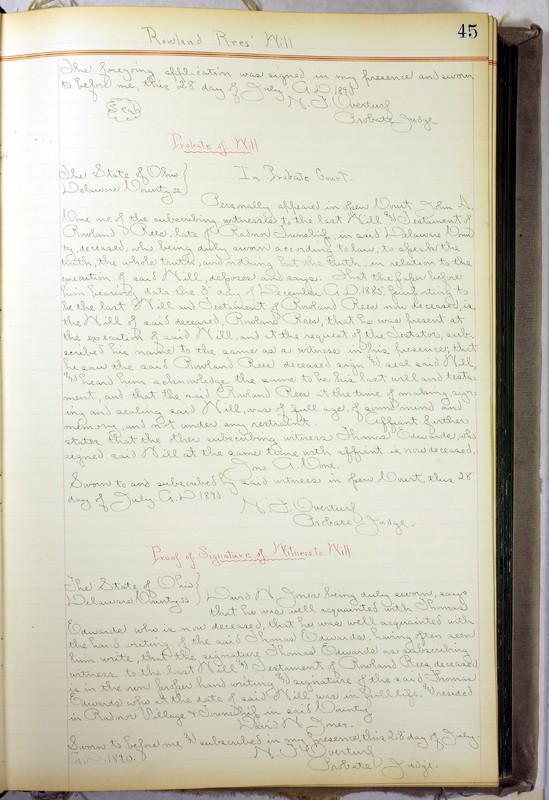 45
Rowland Rees' Will
The foregoing application was signed in my presence and sworn
to before me, this 28 day of July A.D. 1890
N. F. Overturf
Seal
Probate Judge
Probate of Will
The State of Ohio }
Delaware County ss }
In Probate Court.
Personally appeared in open Court John A.
one of the subscribing witnesses to the last Will & Testament of
Rowland Rees, late of Radnor Township, in said Delaware Coun
ty, deceased, who being duly sworn according to law, to speak the
truth, the whole truth, and nothing but the truth, in relation to the
execution of said Will, deposes and says: That the paper before
him bearing date the 3d day of December A.D. 1885, purporting to
be the last Will and Testament of Rowland Rees now deceased, is
the Will of said deceased, Rowland Rees, that he was present at
the execution of said Will, and at the request of the Testator, sub-
scribed his name to the same as a witness in his presence; that
he saw the said Rowland Rees deceased sign & seal said Will,
& heard him acknowledge the same to be his last will and testa-
ment, and that the said Rowland Rees at the time of making, sign-
ing and sealing said Will, was of full age, of sound mind and
memory, and not under any restraint. Affiant further
states that the other subscribing witness Thomas Edwards, who
signed said Will at the same time with affiant is now deceased.
Jno. A.
Sworn to and subscribed by said witness in open Court, this 28
day of July A.D. 1890.
N. F. Overturf
Probate Judge.
Proof of Signature of Witness to Will
The State of Ohio }
Delaware County ss } David N. Jones being duly sworn, says
that he was well acquainted with Thomas
Edwards who is now deceased, that he was well acquainted with
the hand writing of the said Thomas Edwards, having often seen
him write, that the signature Thomas Edwards as subscribing
witness to the last Will & Testament of Rowland Rees, deceased,
is in the own proper hand writing & signature of the said Thomas
Edwards who at the date of said Will was in full life & resided
in Radnor Village & Township in said County
David N. Jones.
Sworn to before me & subscribed in my presence this 28 day of July
A.D. 1890.
N. F. Overturf
Probate Judge.